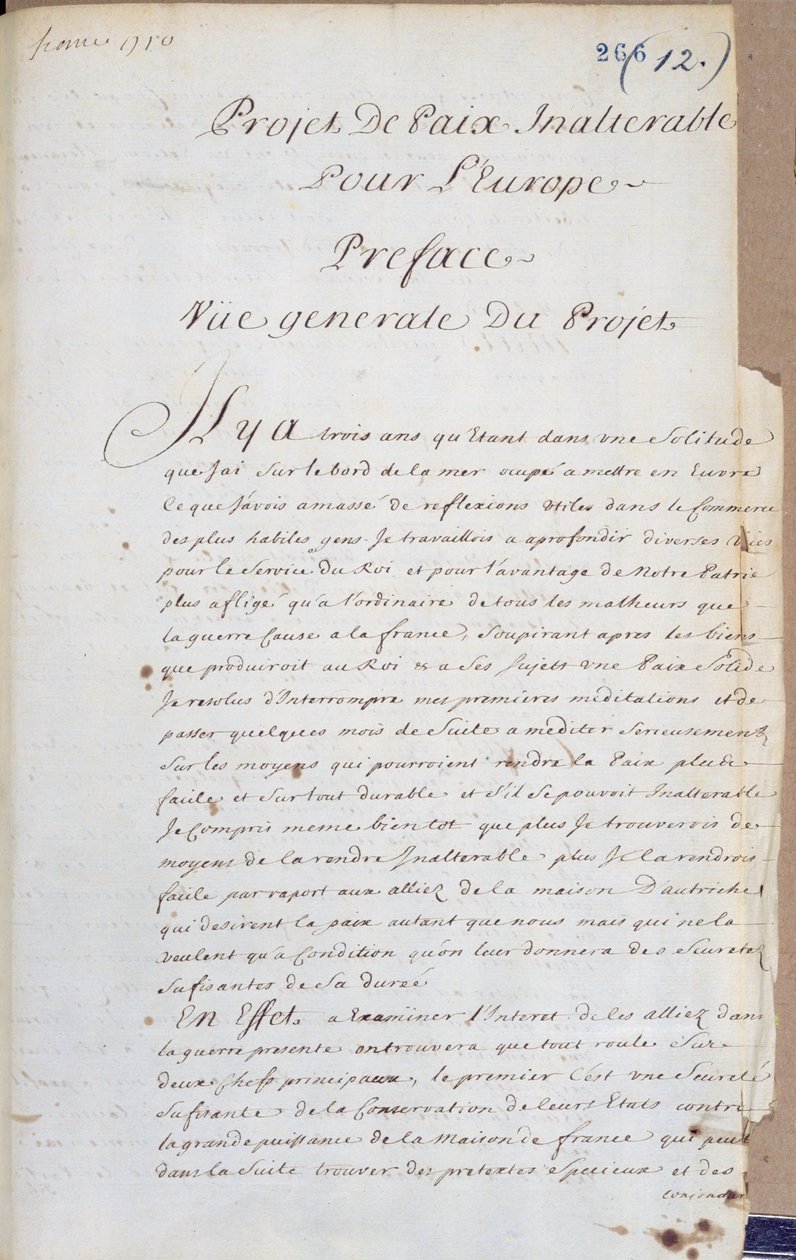 france 1710
266 (12.)
Projet De Paix Inalterable
Pour L'Europe
Preface
Vüe generale Du Projet
Il y a trois ans qu'Etant dans vne solitude
que J'ai sur le bord de la mer ocupé a mettre en Euvre
ce que J'avois amassé de reflexions vtiles dans le Commerce
des plus habiles gens Je travaillois a aprofondir diverses vües
pour le service du Roi et pour l'avantage de Notre Patrie
plus afligé qu'a l'ordinaire de tous les malheurs que
la guerre Cause a la france, soupirant apres les biens
que produiroit au Roi & a ses sujets vne Paix solide
Je resolus d'Interrompre mes premieres meditations et de
passer quelques mois de suite a mediter serieusement
sur les moyens qui pourroient rendre la Paix plus
facile et sur tout durable et s'il se pouvoit Inalterable
Je compris meme bientot que plus Je trouverois de
moyens de la rendre Inalterable plus Je la rendrois
facile par raport aux alliez de la maison D'autriche
qui desirent la paix autant que nous mais qui ne la
veulent qu'a Condition qu'on leur donnera des seuretez
sufisantes de sa dureé
En Effet a Examiner l'Interet de ces alliez dans
la guerre presente on trouvera que tout roule sur
deux chefs principaux, le premier C'est vne seureté
sufisante de la Conservation de leurs Etats contre
la grande puissance de la Maison de france qui peut
dans la suite trouver des pretextes specieux et des